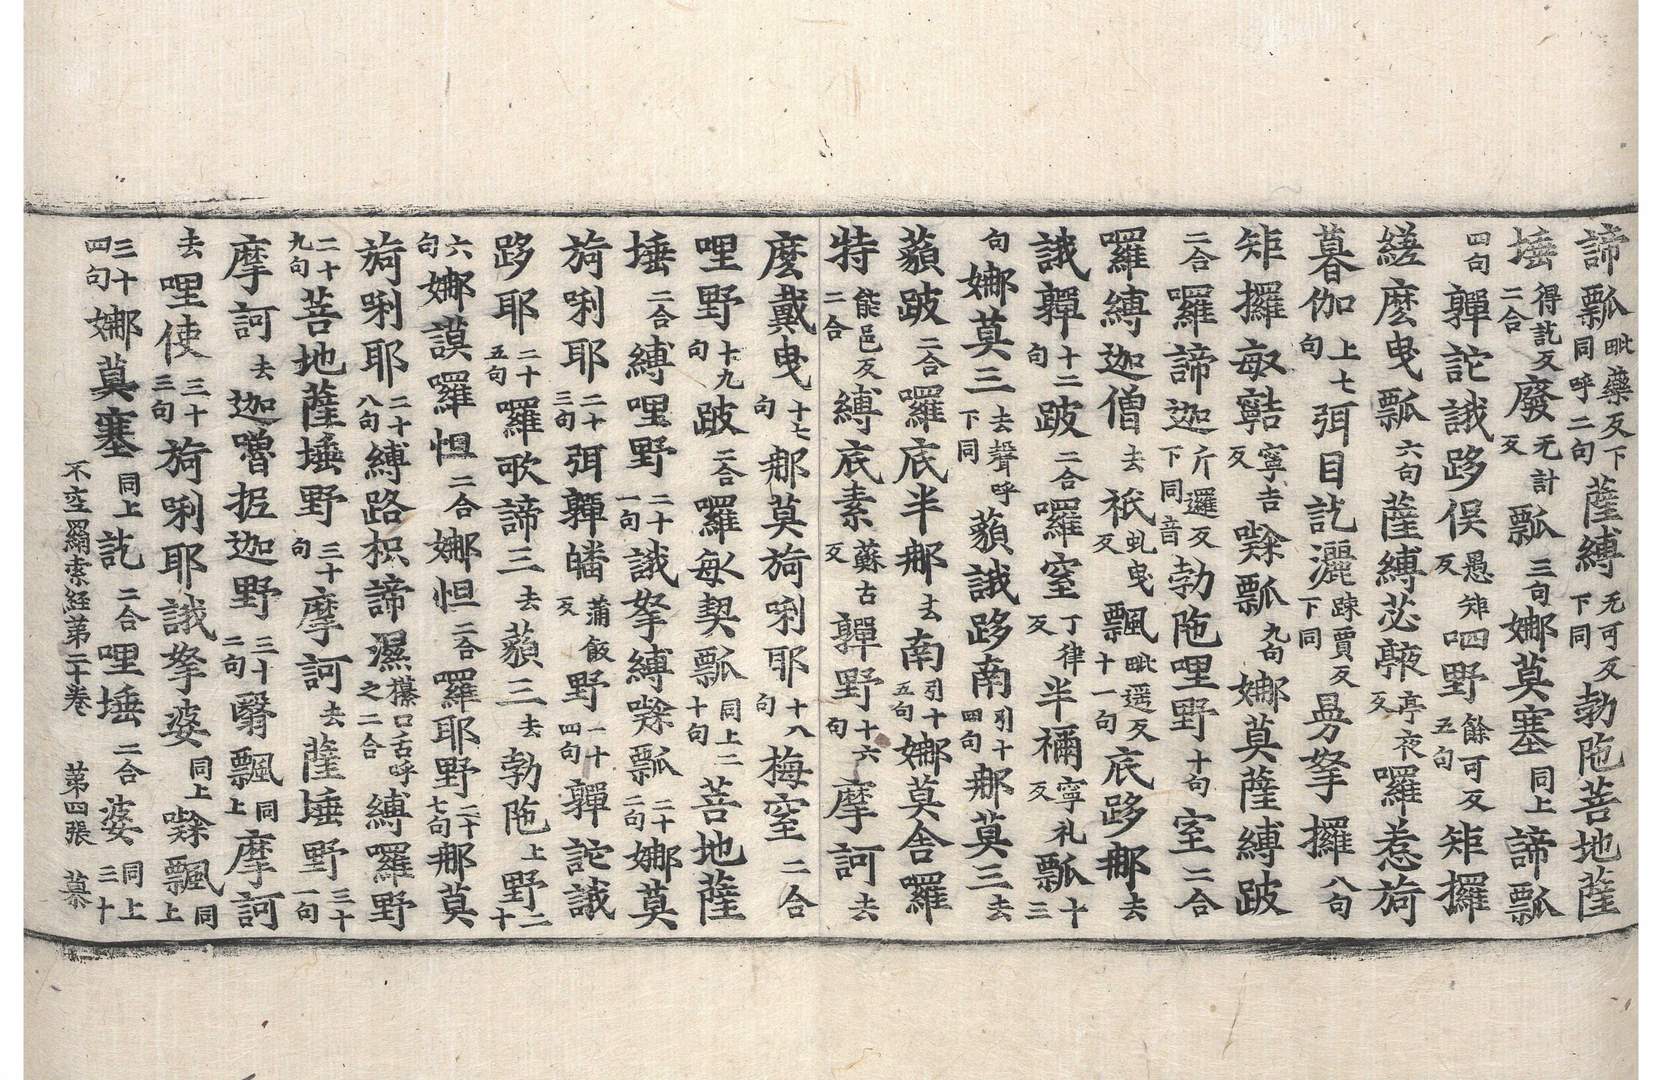 諦瓢毗藥反下同呼二句薩縛无可反下同勃陁菩地薩
埵二合得訖反廢无計反瓢三句娜莫塞同上諦瓢
四句亸詑誐跢俁愚矩反呬野餘可反五句矩攞
縒麽曳瓢六句薩縛苾亭夜反囉惹旖
暮伽上七句弭目訖灑踈賈反下同拏攞八句
矩攞每寧吉反瓢九句娜莫薩縛跛
二合囉諦迦斤邏反下同音勃陁哩野十句窒二合
囉縛迦僧去祇虬曳反飄毗遥反十一句底跢那去
誐亸十二句跛二合囉窒丁律反半禰寧礼反瓢十三
句娜莫三去聲呼下同藐誐跢南引十四句那莫三去
藐跛二合囉底半那去南引十五句娜莫舍囉
特能邑反二合縛底素蘇古反亸野十六句摩訶去
麽戴曳十七句那莫旖唎耶十八句梅窒二合
哩野十九句跛二合囉每契瓢同上二十句菩地薩
埵二合縛哩野二十一句誐拏縛瓢二十二句娜莫
旖唎耶二十三句弭亸皤蒲飯反野二十四句亸詑誐
跢耶二十五句囉歌諦三去藐三去勃陁上野二十
六句娜謨囉怛二合娜怛二合囉耶野二十七句那莫
旖唎耶二十八句縛路枳諦濕攥口舌呼之二合縛囉野
二十九句菩地薩埵野三十句摩訶去薩埵野三十一句
摩訶去迦嚕抳迦野三十二句翳飄同上摩訶
去哩使三十三句旖唎耶誐拏婆同上飄同上
三十四句娜莫塞同上訖二合哩埵二合婆同上三十
不空羂索経第二十卷 第四張 慕